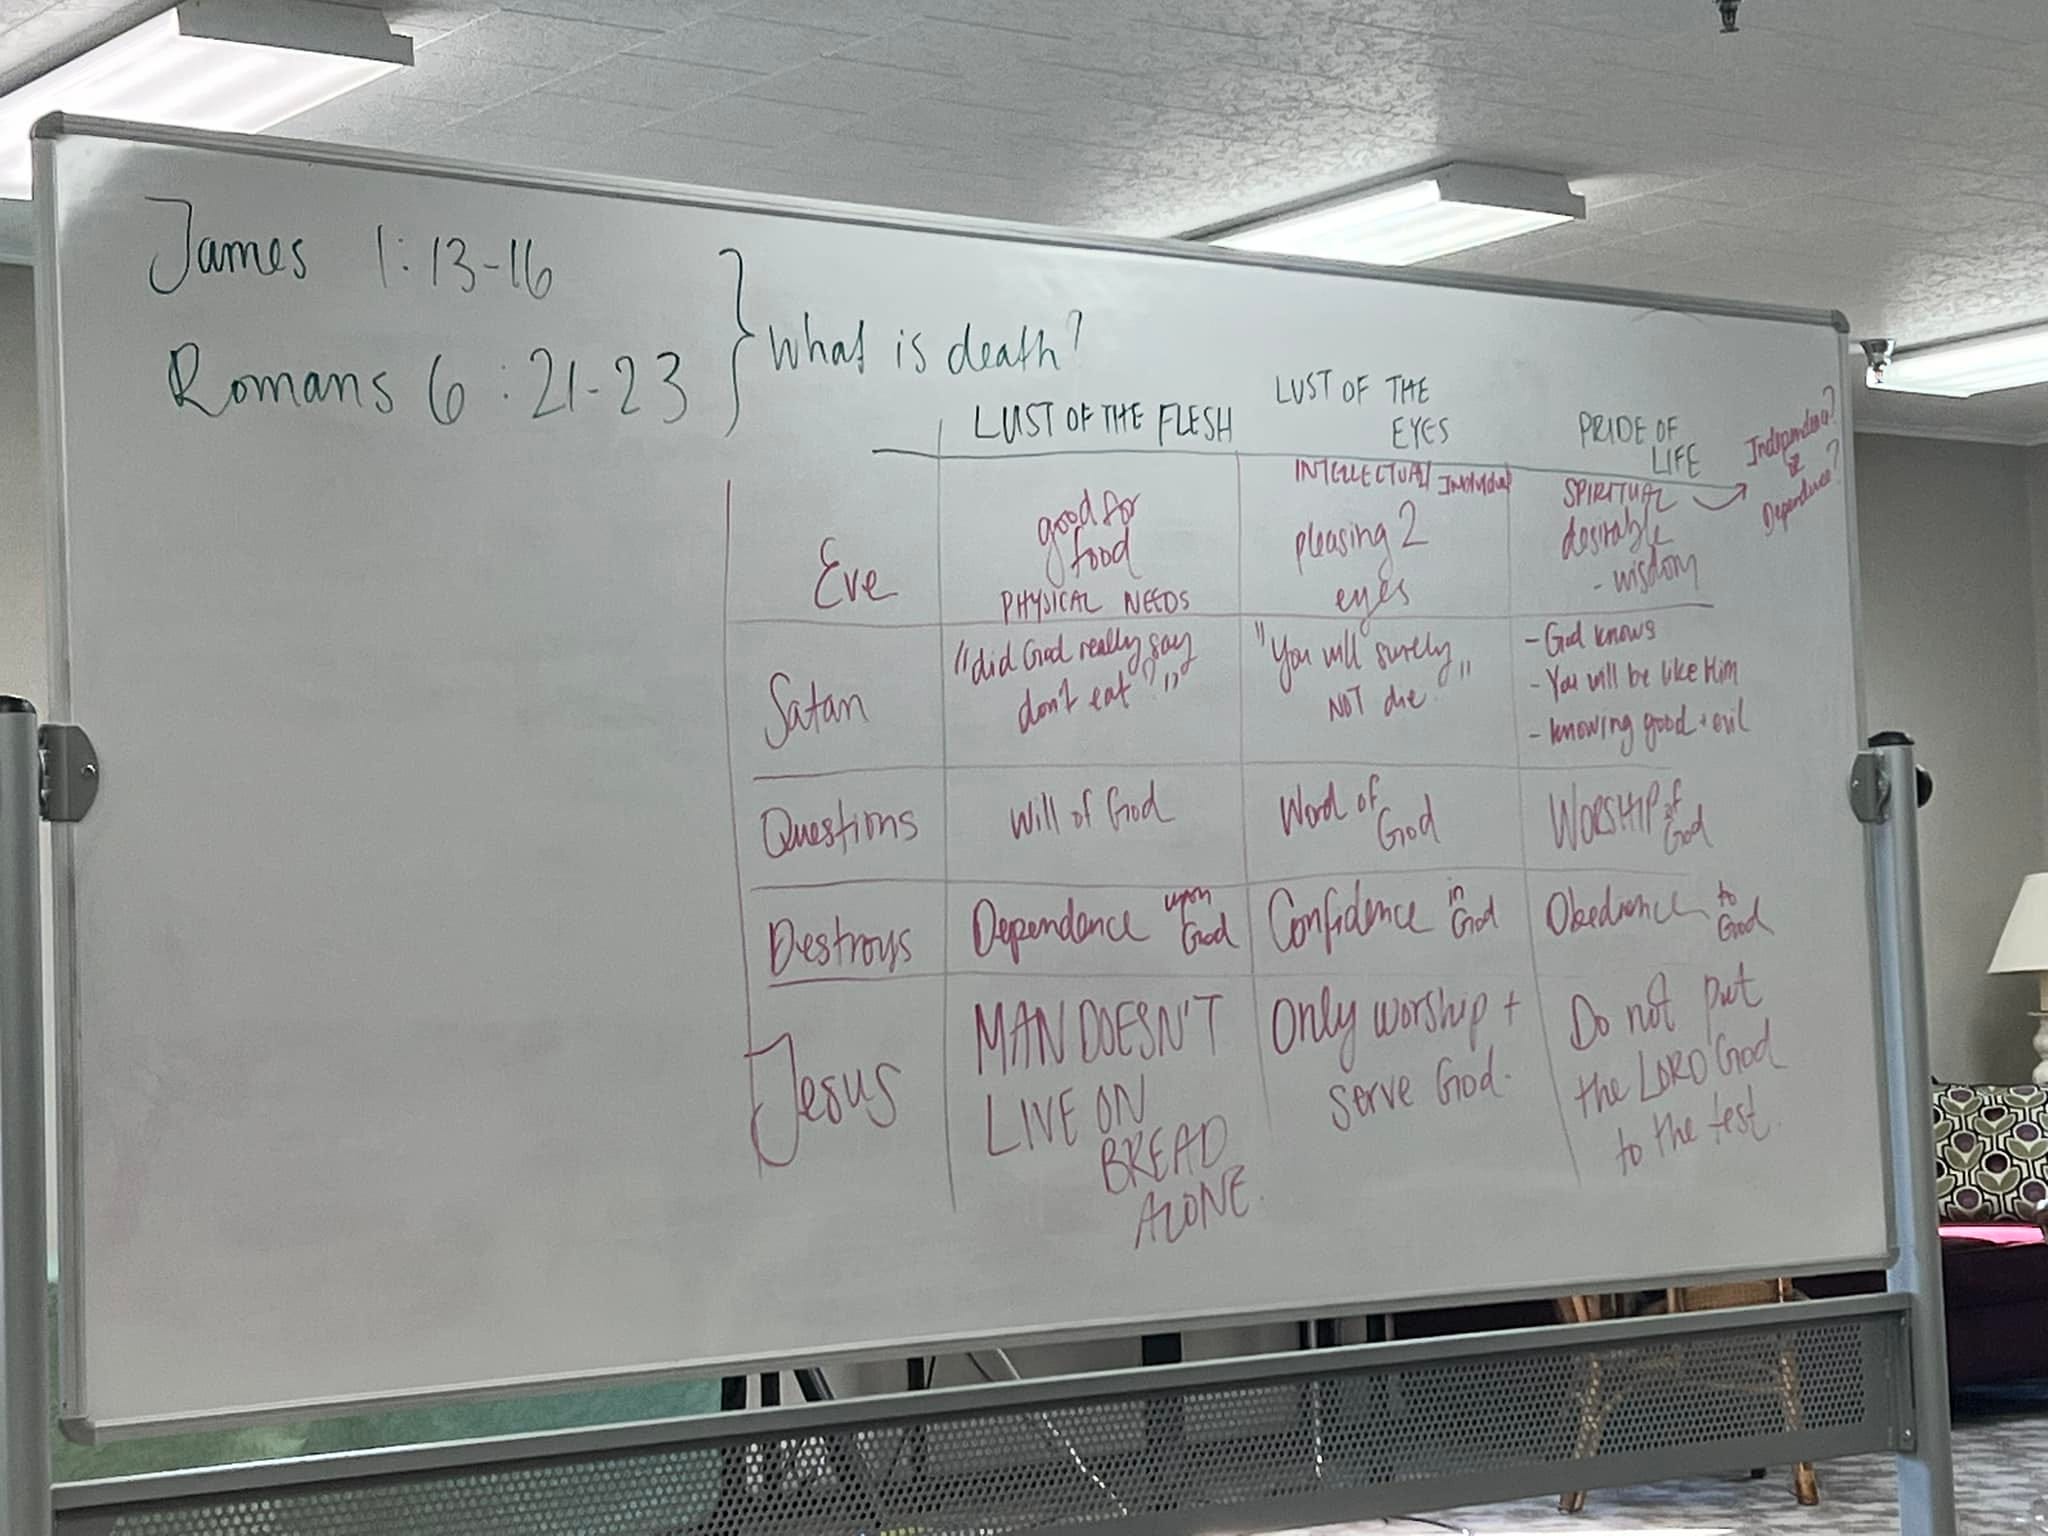 James 1:13-16
Romans 6:21-23
What is death?
LUST OF THE FLESH
LUST OF THE
EYES
PRIDE OF
LIFE
Independence?
or
Dependence?
Eve
good for
food
PHYSICAL NEEDS
INTELLECTUAL Individual
pleasing 2
eyes
SPIRITUAL
desirable
- wisdom
Satan
"did God really say
don't eat"?"
"You will surely
NOT die."
- God knows
- You will be like Him
- knowing good + evil
Questions
Will of God
Word of
God
WORSHIP of
God
Destroys
Dependance upon
God
Confidence in
God
Obedience to
God
Jesus
MAN DOESN'T
LIVE ON
BREAD
ALONE.
Only worship +
serve God.
Do not put
the LORD God
to the test.